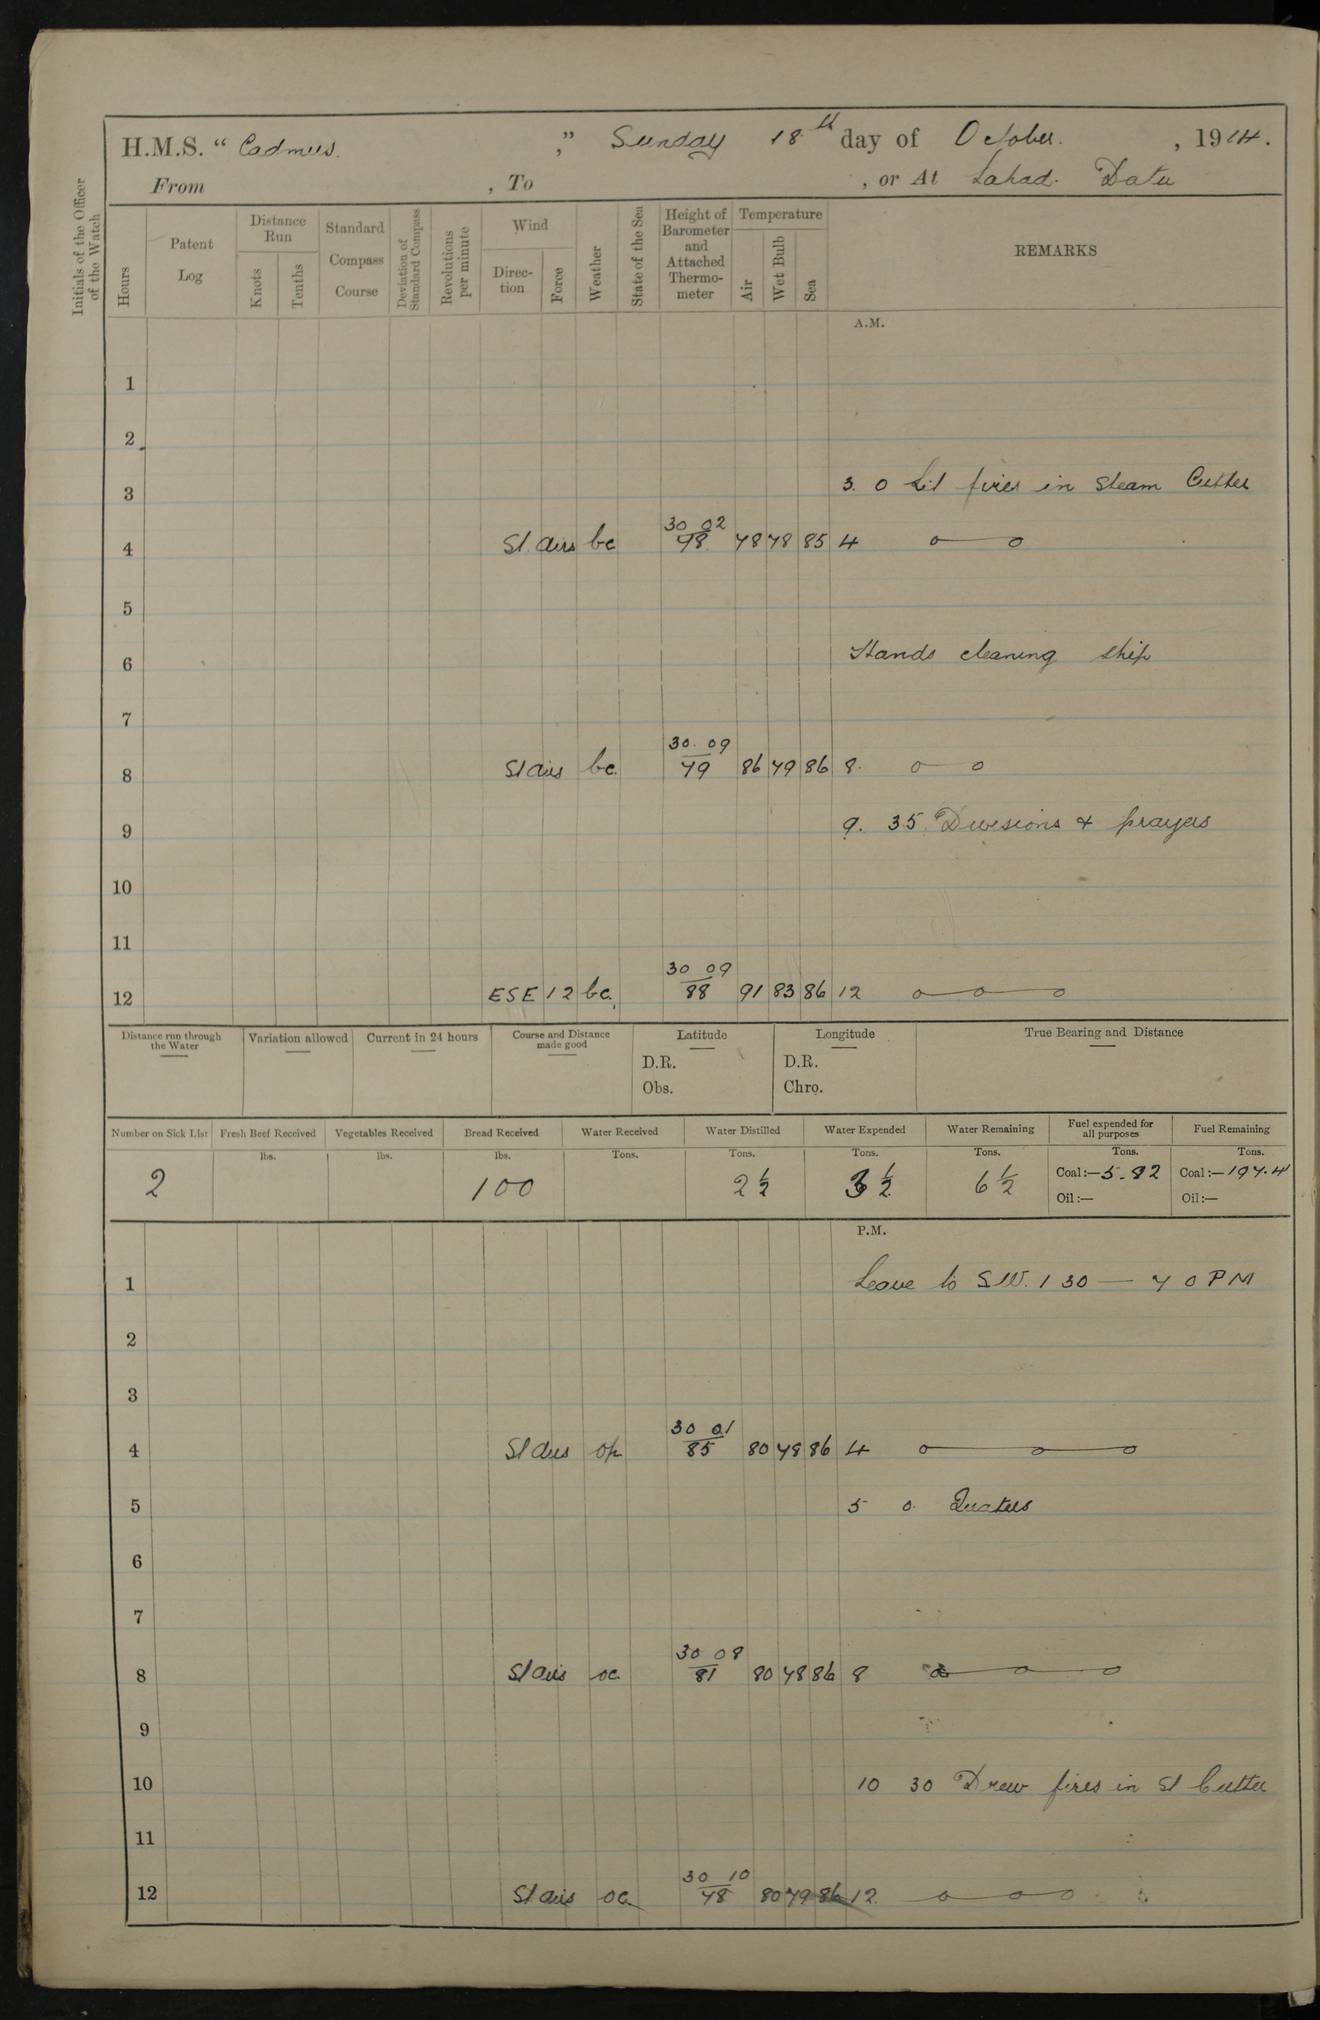 H.M.S. " Cadmus. ," Sunday 18th day of October. , 1914.
From , To , or At Lahad Datu
Initials of the Officer of the Watch
Hours
Patent Log
Distance Run
Knots
Tenths
Standard Compass Course
Deviation of Standard Compass
Revolutions per minute
Wind
Direc-tion
Force
Weather
State of the Sea
Height of Barometer and Attached Thermo-meter
Temperature
Air
Wet Bulb
Sea
REMARKS
A.M.
1
2
3 3. 0 Lit fires in Steam Cutter
30 02
4 St. airs bc 78 78 78 85 4
5
6 Hands cleaning ship
7
30. 09
8 St airs bc. 79 86 79 86 8.
9 9. 35. Divisions & prayers
10
11
30 09
12 ESE 1 2 bc. 88 91 83 86 12
Distance run through the Water
Variation allowed
Current in 24 hours
Course and Distance made good
Latitude
D.R.
Obs.
Longitude
D.R.
Chro.
True Bearing and Distance
Number on Sick List Fresh Beef Received Vegetables Received Bread Received Water Received Water Distilled Water Expended Water Remaining Fuel expended for all purposes Fuel Remaining
lbs. lbs. lbs. Tons. Tons. Tons. Tons. Tons. Tons.
2 100 2 1/2 3 1/2 6 1/2 Coal:— 5.82 Coal:— 197.4
Oil:— Oil:—
P.M.
1 Leave to S.W. 1 30 — 7 0 PM
2
3
30 01
4 St airs op 85 80 78 86 4
5 5 0. Quarters
6
7
30 08
8 St airs oc. 81 80 78 86 8
9
10 10 30 Drew fires in St Cutter
11
30 10
12 St airs oc. 78 80 79 86 12